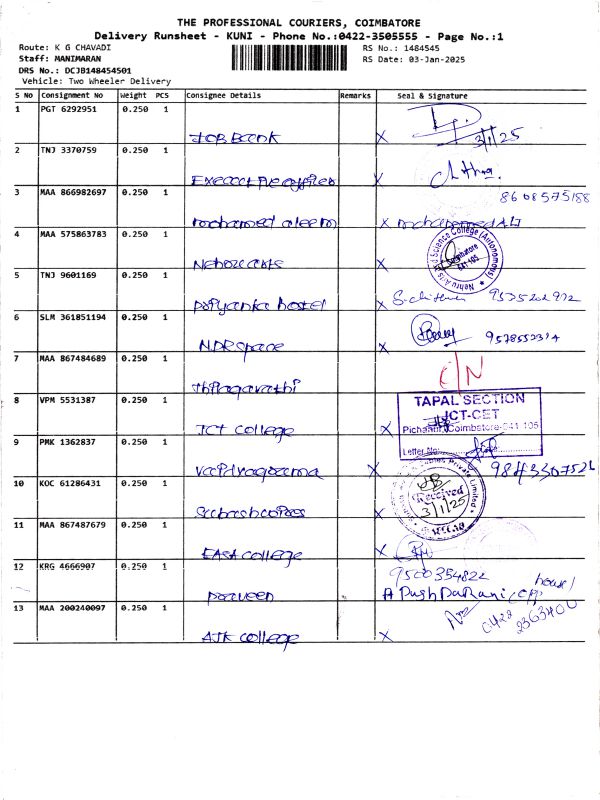 THE PROFESSIONAL COURIERS, COIMBATORE
Delivery Runsheet - KUNI - Phone No.:0422-3505555 - Page No.:1
Route: K G CHAVADI
RS No.: 1484545
Staff: MANIMARAN
RS Date: 03-Jan-2025
DRS No.: DCJB148454501
Vehicle: Two Wheeler Delivery
S No Consignment No Weight PCS Consignee Details Remarks Seal & Signature
1 PGT 6292951 0.250 1
JOB BANK X 3/1/25
2 TNJ 3370759 0.250 1
X
3 MAA 866982697 0.250 1 8608575188
mohamed aleem X mohammed Ali
4 MAA 575863783 0.250 1
Nehru arts X
Nehru Arts and Science College (Autonomous)
Coimbatore
641 105
5 TNJ 9601169 0.250 1
priyanka hostel X
6 SLM 361851194 0.250 1
NDR space X
7 MAA 867484689 0.250 1 C/N
8 VPM 5531387 0.250 1
JCT college X
TAPAL SECTION
JCT-CET
Pichanur, Coimbatore-641 105
Letter No:
9 PMK 1362837 0.250 1
X 9843307526
10 KOC 61286431 0.250 1
Received
3/1/25
Private Limited
11 MAA 867487679 0.250 1
EASA college X
12 KRG 4666907 0.250 1 9500354822
praveen
13 MAA 200240097 0.250 1
0422
2363400
AJK college X